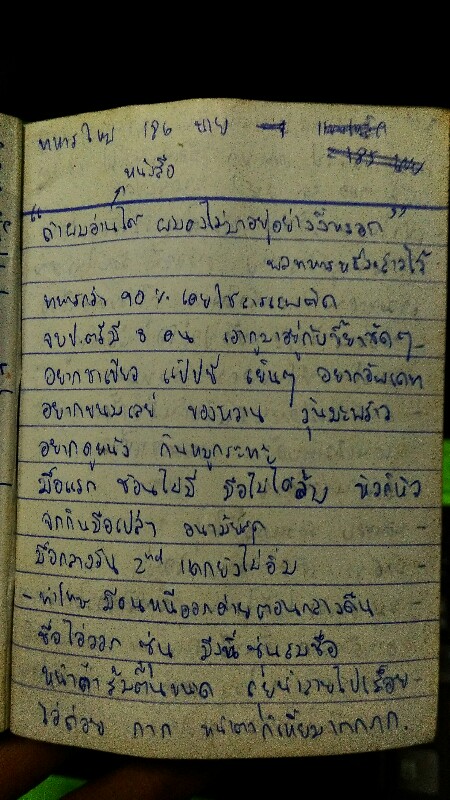 ทหารใหม่ 186 นาย
หนังสือ
"ถ้าผมอ่านได้ ผมคงไม่มาอยู่อย่างงี้หรอก"
พลทหารหนึ่งกล่าวไว้
ทหารกว่า 90 % เคยใช้สารเสพติด
จบป.ตรีมี 8 คน เอากูมาอยู่กับขี้ยาชัดๆ
อยากชาเขียว แป๊ปซี่ เย็นๆ อยากอัพเดท
อยากขนมเลย์ ของหวาน วุ้นมะพร้าว
อยากดูหนัง กินหมูกระทะ
มื้อแรก ช้อนไม่มี มือไม่ได้ล้าง หิวก็หิว
จกกินมือเปล่า อนามัยสุด
มื้อกลางวัน 2nd แดกยังไม่อิ่ม
- มีคนหนีออกค่ายตอนกลางคืน
ชื่อไอ้วอก ซุ่น
หน้าดำ ไปเรื่อย
ไอ้ถ่อย กาก หน้าตาก็เหี้ยมากกกก.